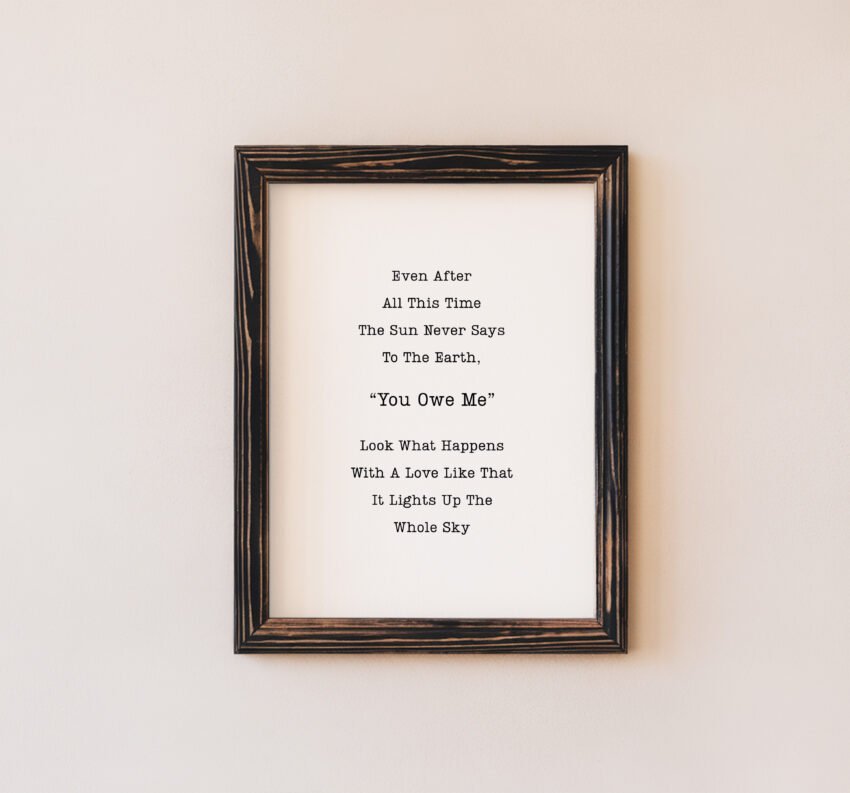 Even After
All This Time
The Sun Never Says
To The Earth,
“You Owe Me”
Look What Happens
With A Love Like That
It Lights Up The
Whole Sky